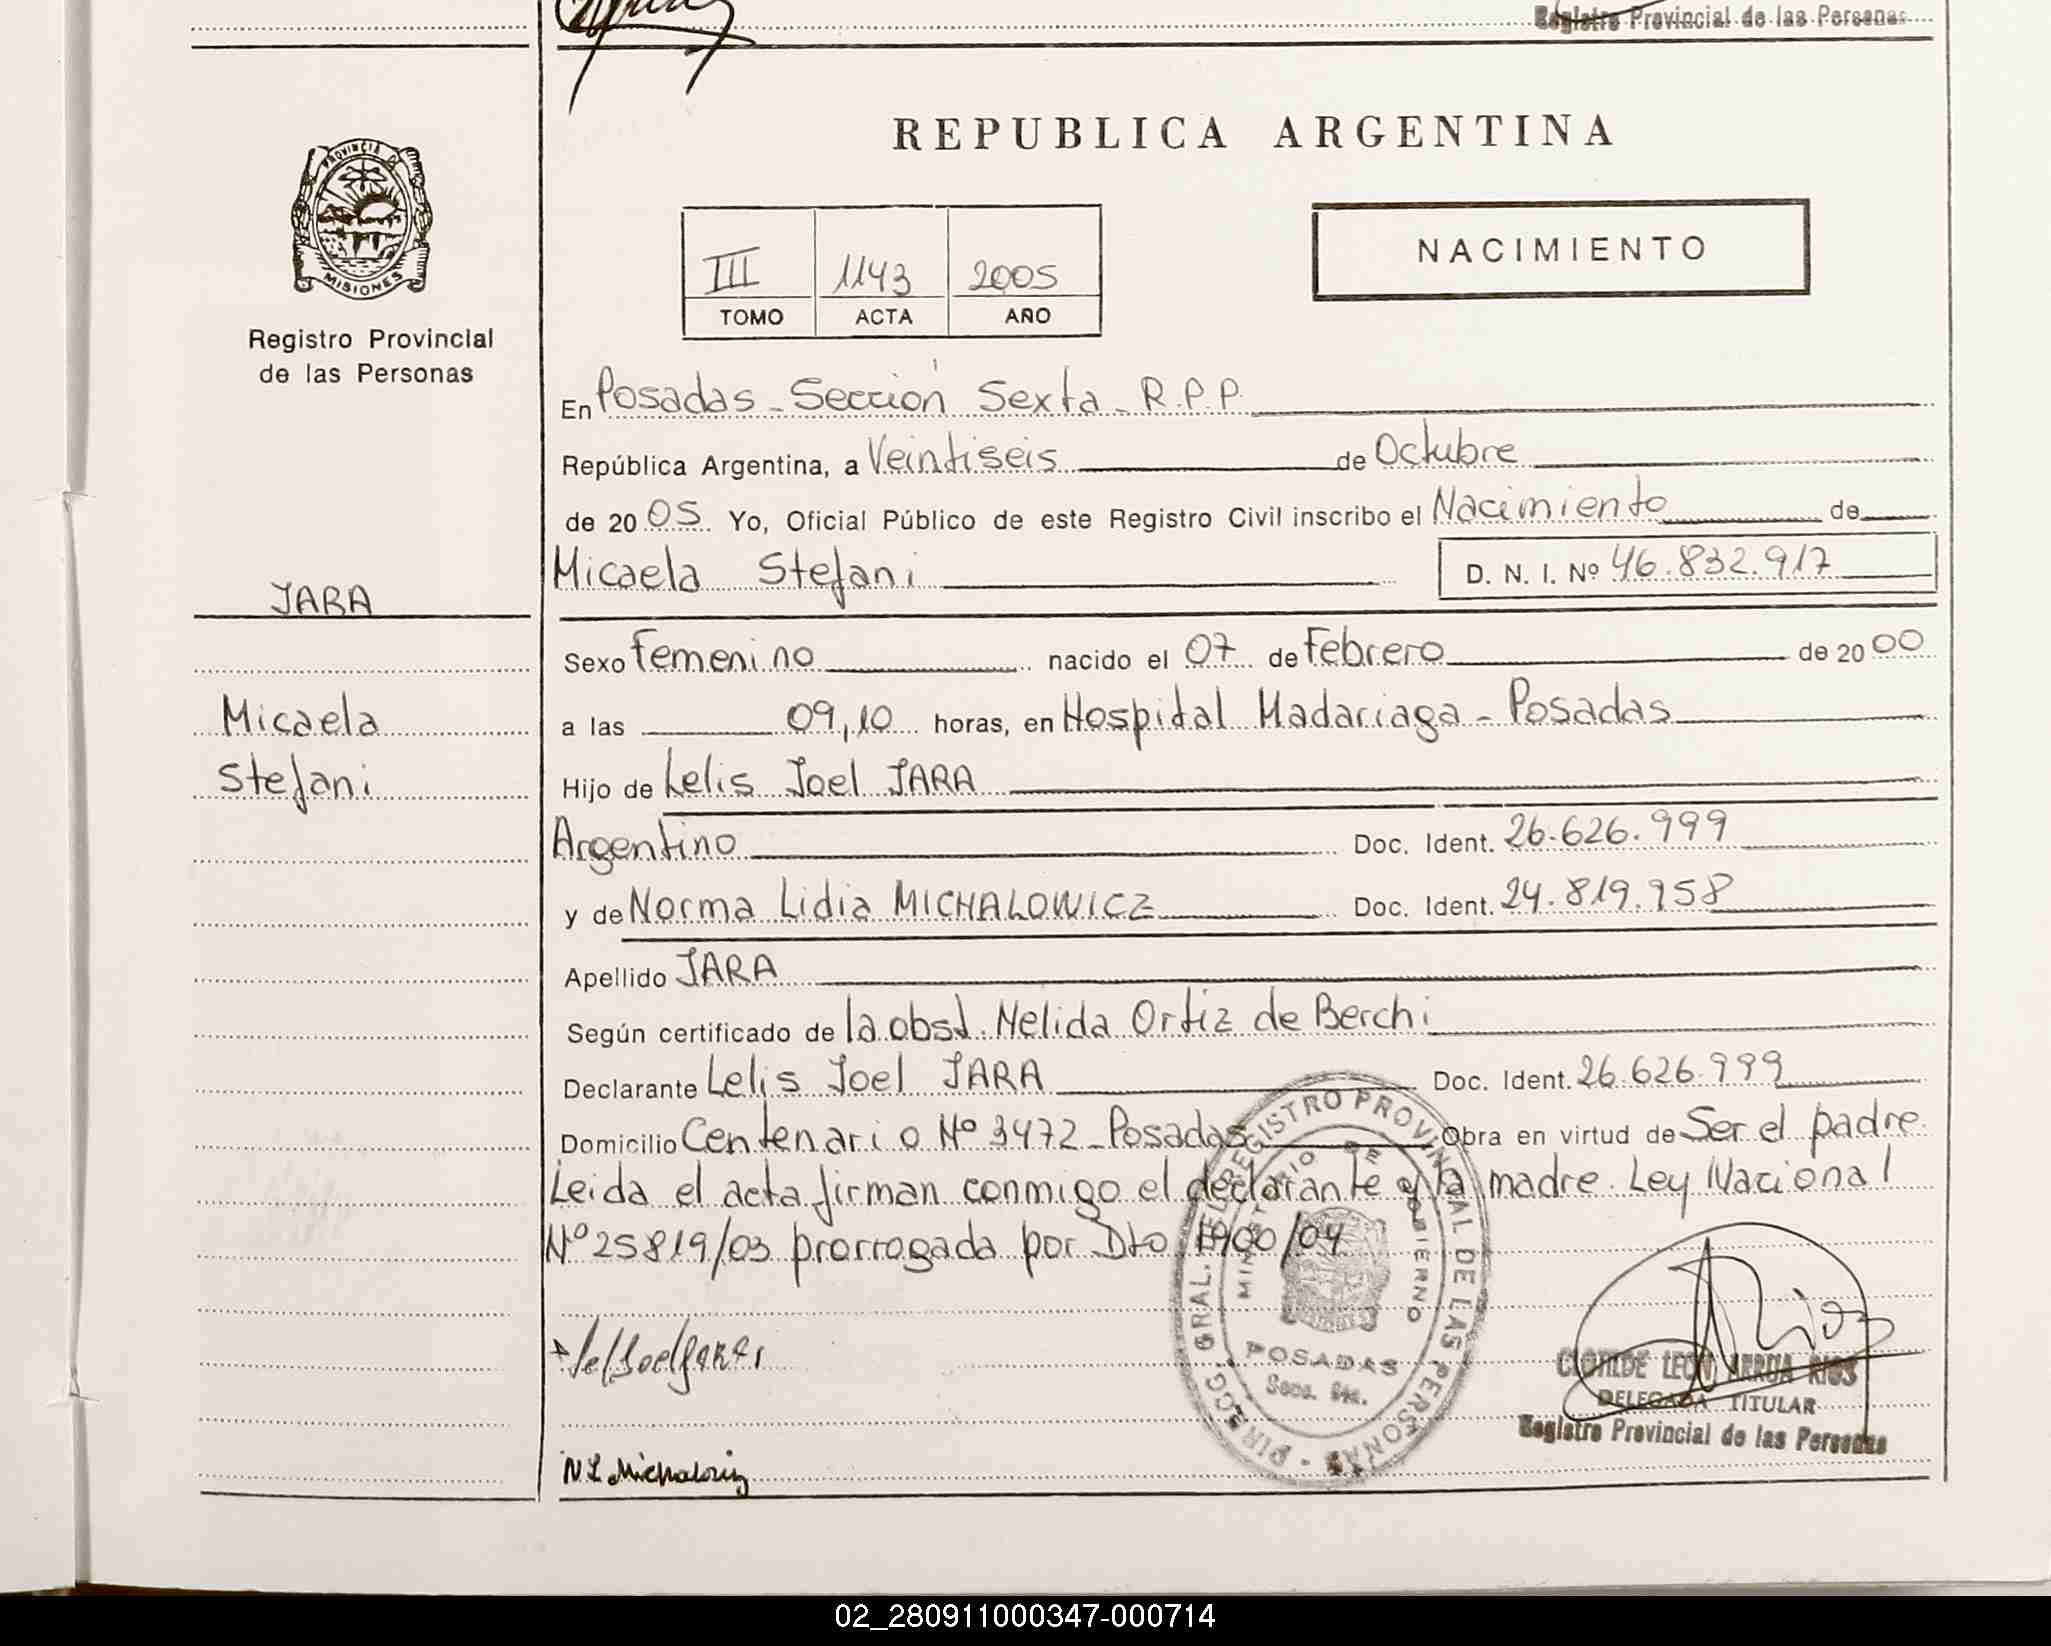 Registro Provincial de las Personas
PROVINCIA DE
MISIONES
Registro Provincial
de las Personas
JARA
Micaela
Stefani
REPUBLICA ARGENTINA
III 1143 2005
TOMO ACTA AÑO
NACIMIENTO
En Posadas - Sección Sexta - R.P.P.
República Argentina, a Veintiseis de Octubre
de 2005 Yo, Oficial Público de este Registro Civil inscribo el Nacimiento de
Micaela Stefani D. N. I. Nº 46.832.917
Sexo Femenino nacido el 07 de Febrero de 2000
a las 09,10 horas, en Hospital Madariaga - Posadas
Hijo de Lelis Joel JARA
Argentino Doc. Ident. 26.626.999
y de Norma Lidia MICHALOWICZ Doc. Ident. 24.819.958
Apellido JARA
Según certificado de la obst. Nelida Ortiz de Berchi
Declarante Lelis Joel JARA Doc. Ident. 26.626.999
Domicilio Centenario Nº 3472 - Posadas Obra en virtud de Ser el padre.
Leida el acta firman conmigo el declarante y la madre. Ley Nacional
Nº 25819/03 prorrogada por Dto 1900/04
DIRECC. GRAL. DEL REGISTRO PROVINCIAL DE LAS PERSONAS
MINISTERIO DE GOBIERNO
POSADAS
Secc. 6ta.
Rios
CLOTILDE LEON ARRUA RIOS
DELEGADA TITULAR
Registro Provincial de las Personas
N L Michalowicz
02_280911000347-000714